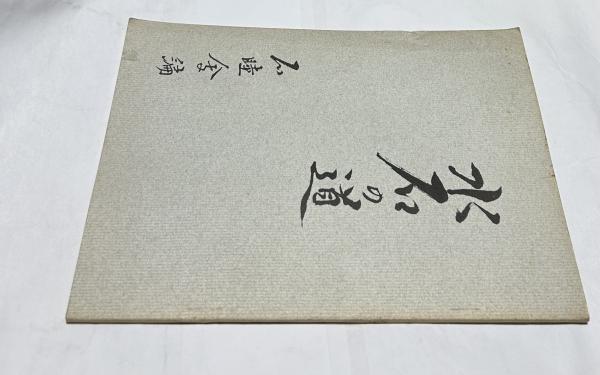 水石の道
石睦会編